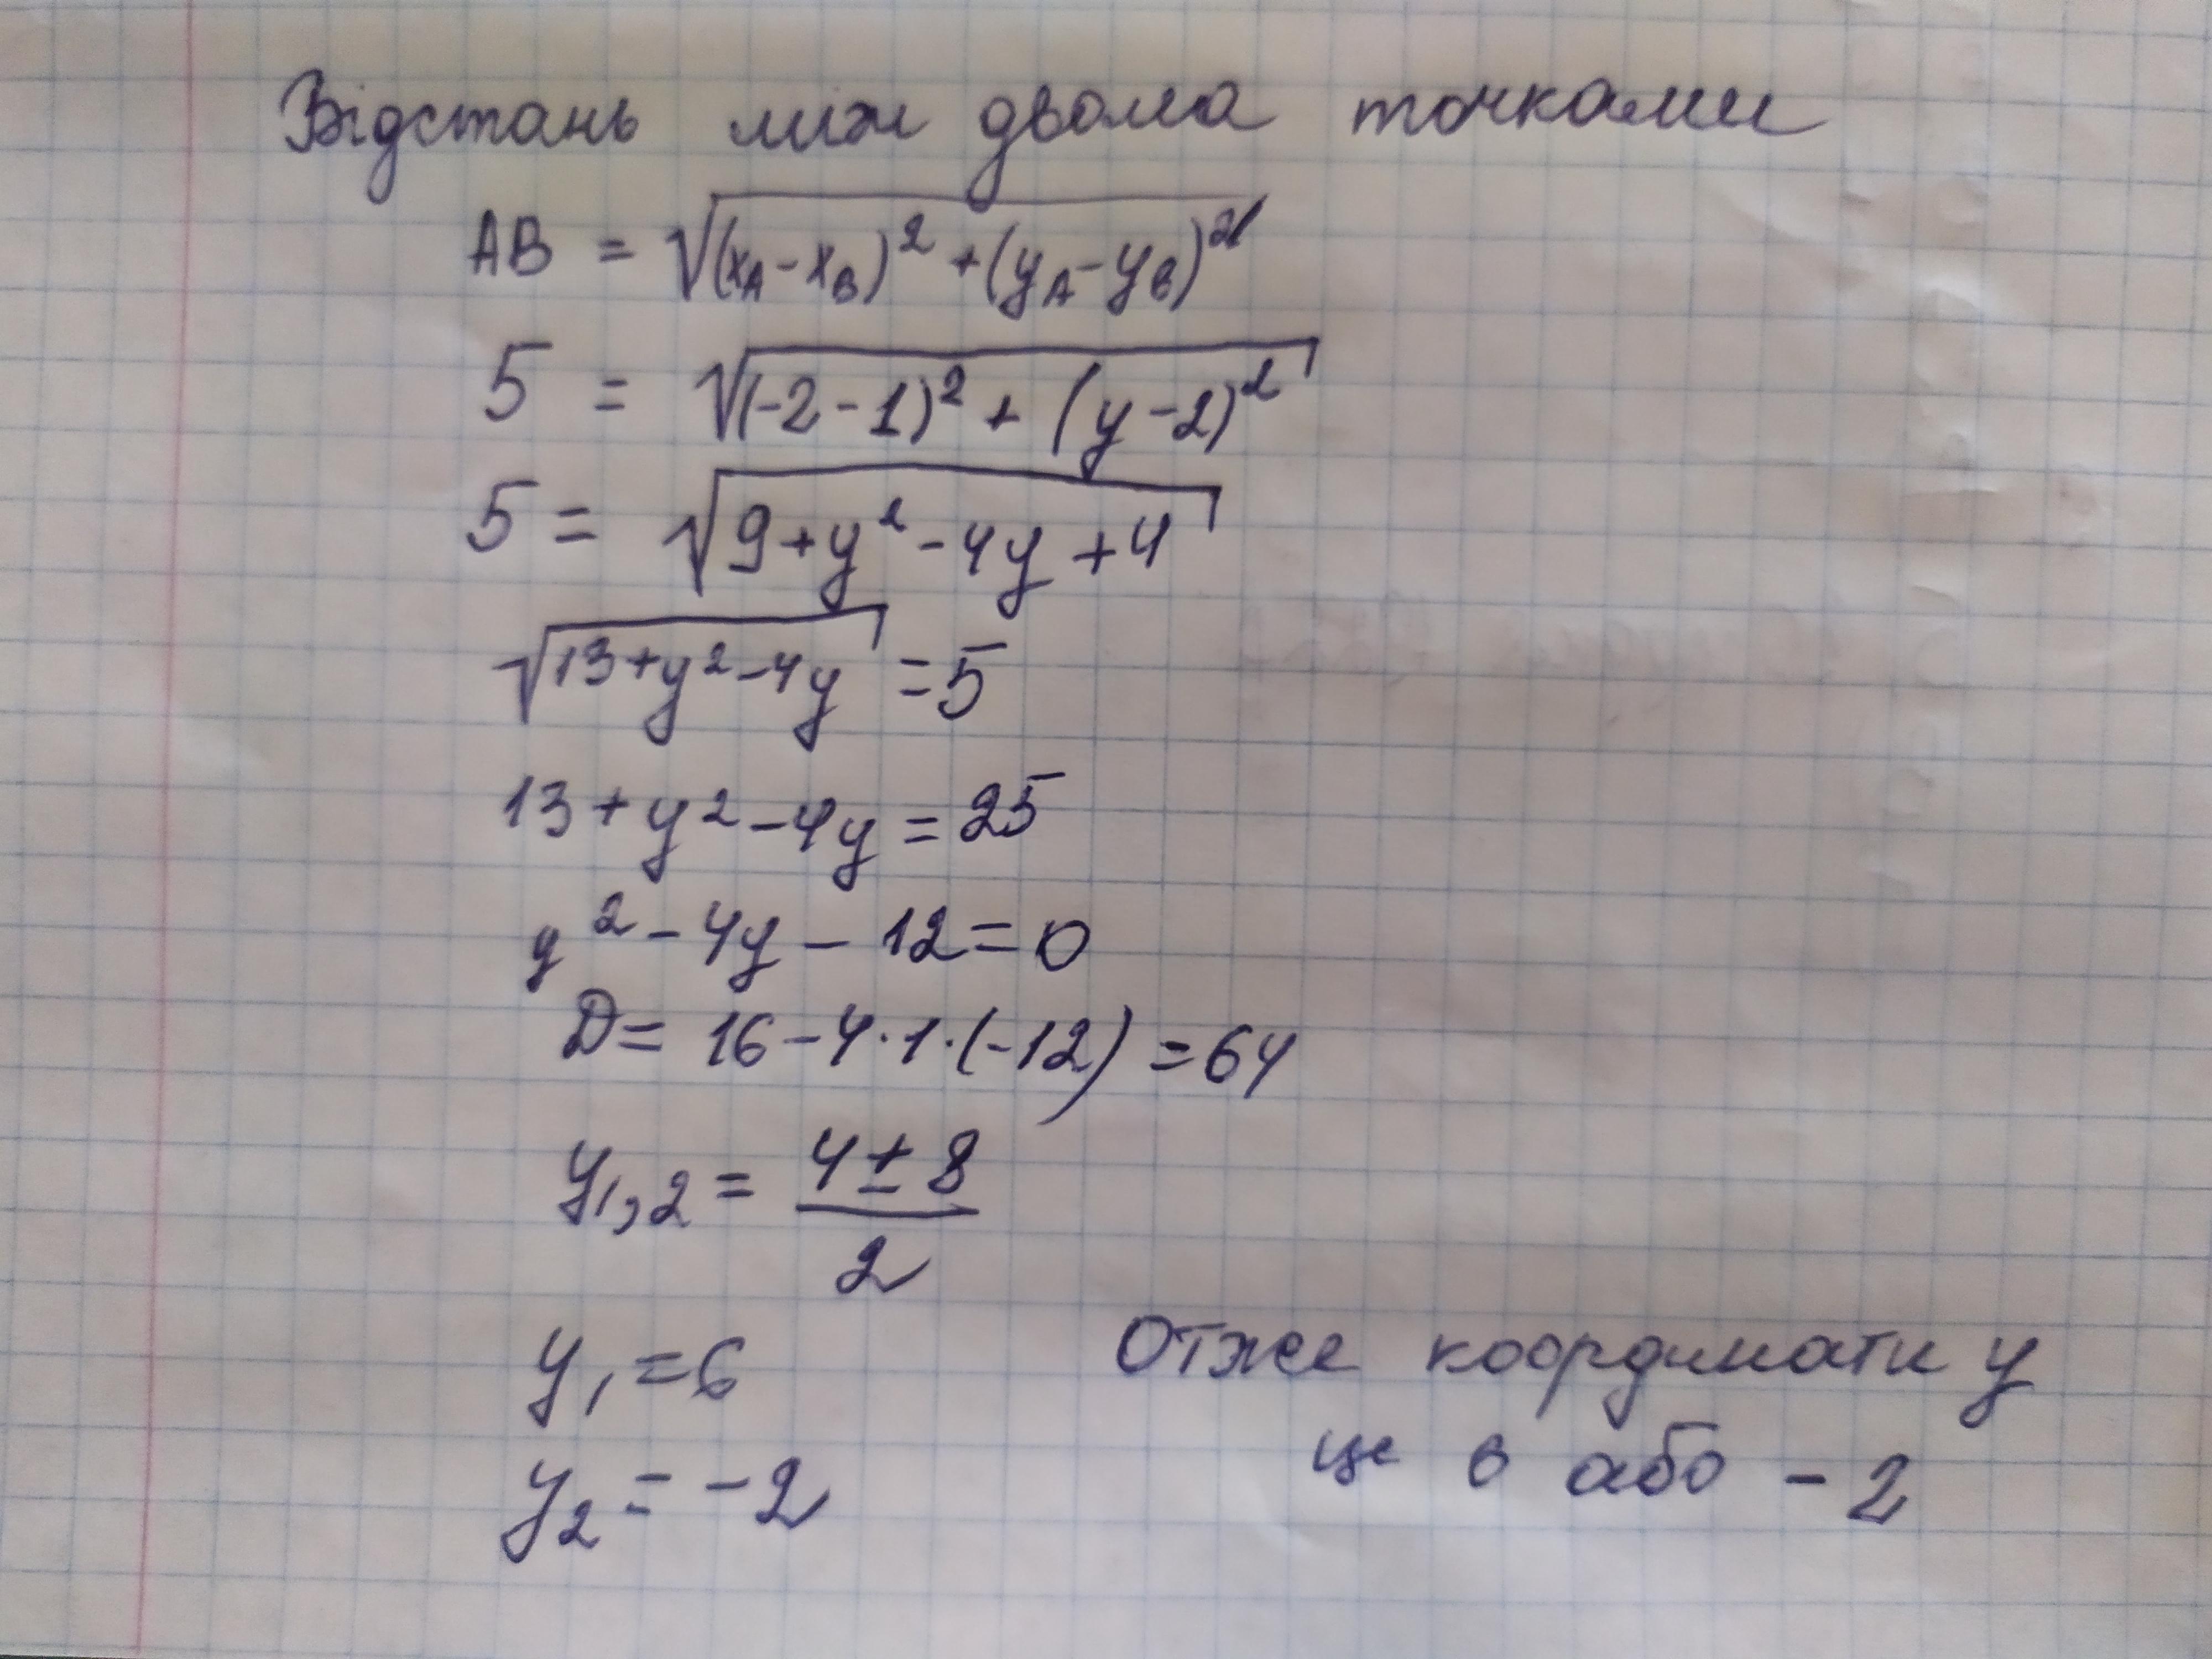 Відстань між двома точками
AB = √((x_A - x_B)² + (y_A - y_B)²)
5 = √((-2-1)² + (y-2)²)
5 = √(9+y²-4y+4)
√(13+y²-4y) = 5
13+y²-4y = 25
y²-4y-12=0
D= 16-4·1·(-12) = 64
y₁,₂ = (4±8)/2
y₁ = 6
y₂ = -2
Отже координати y
це 6 або -2